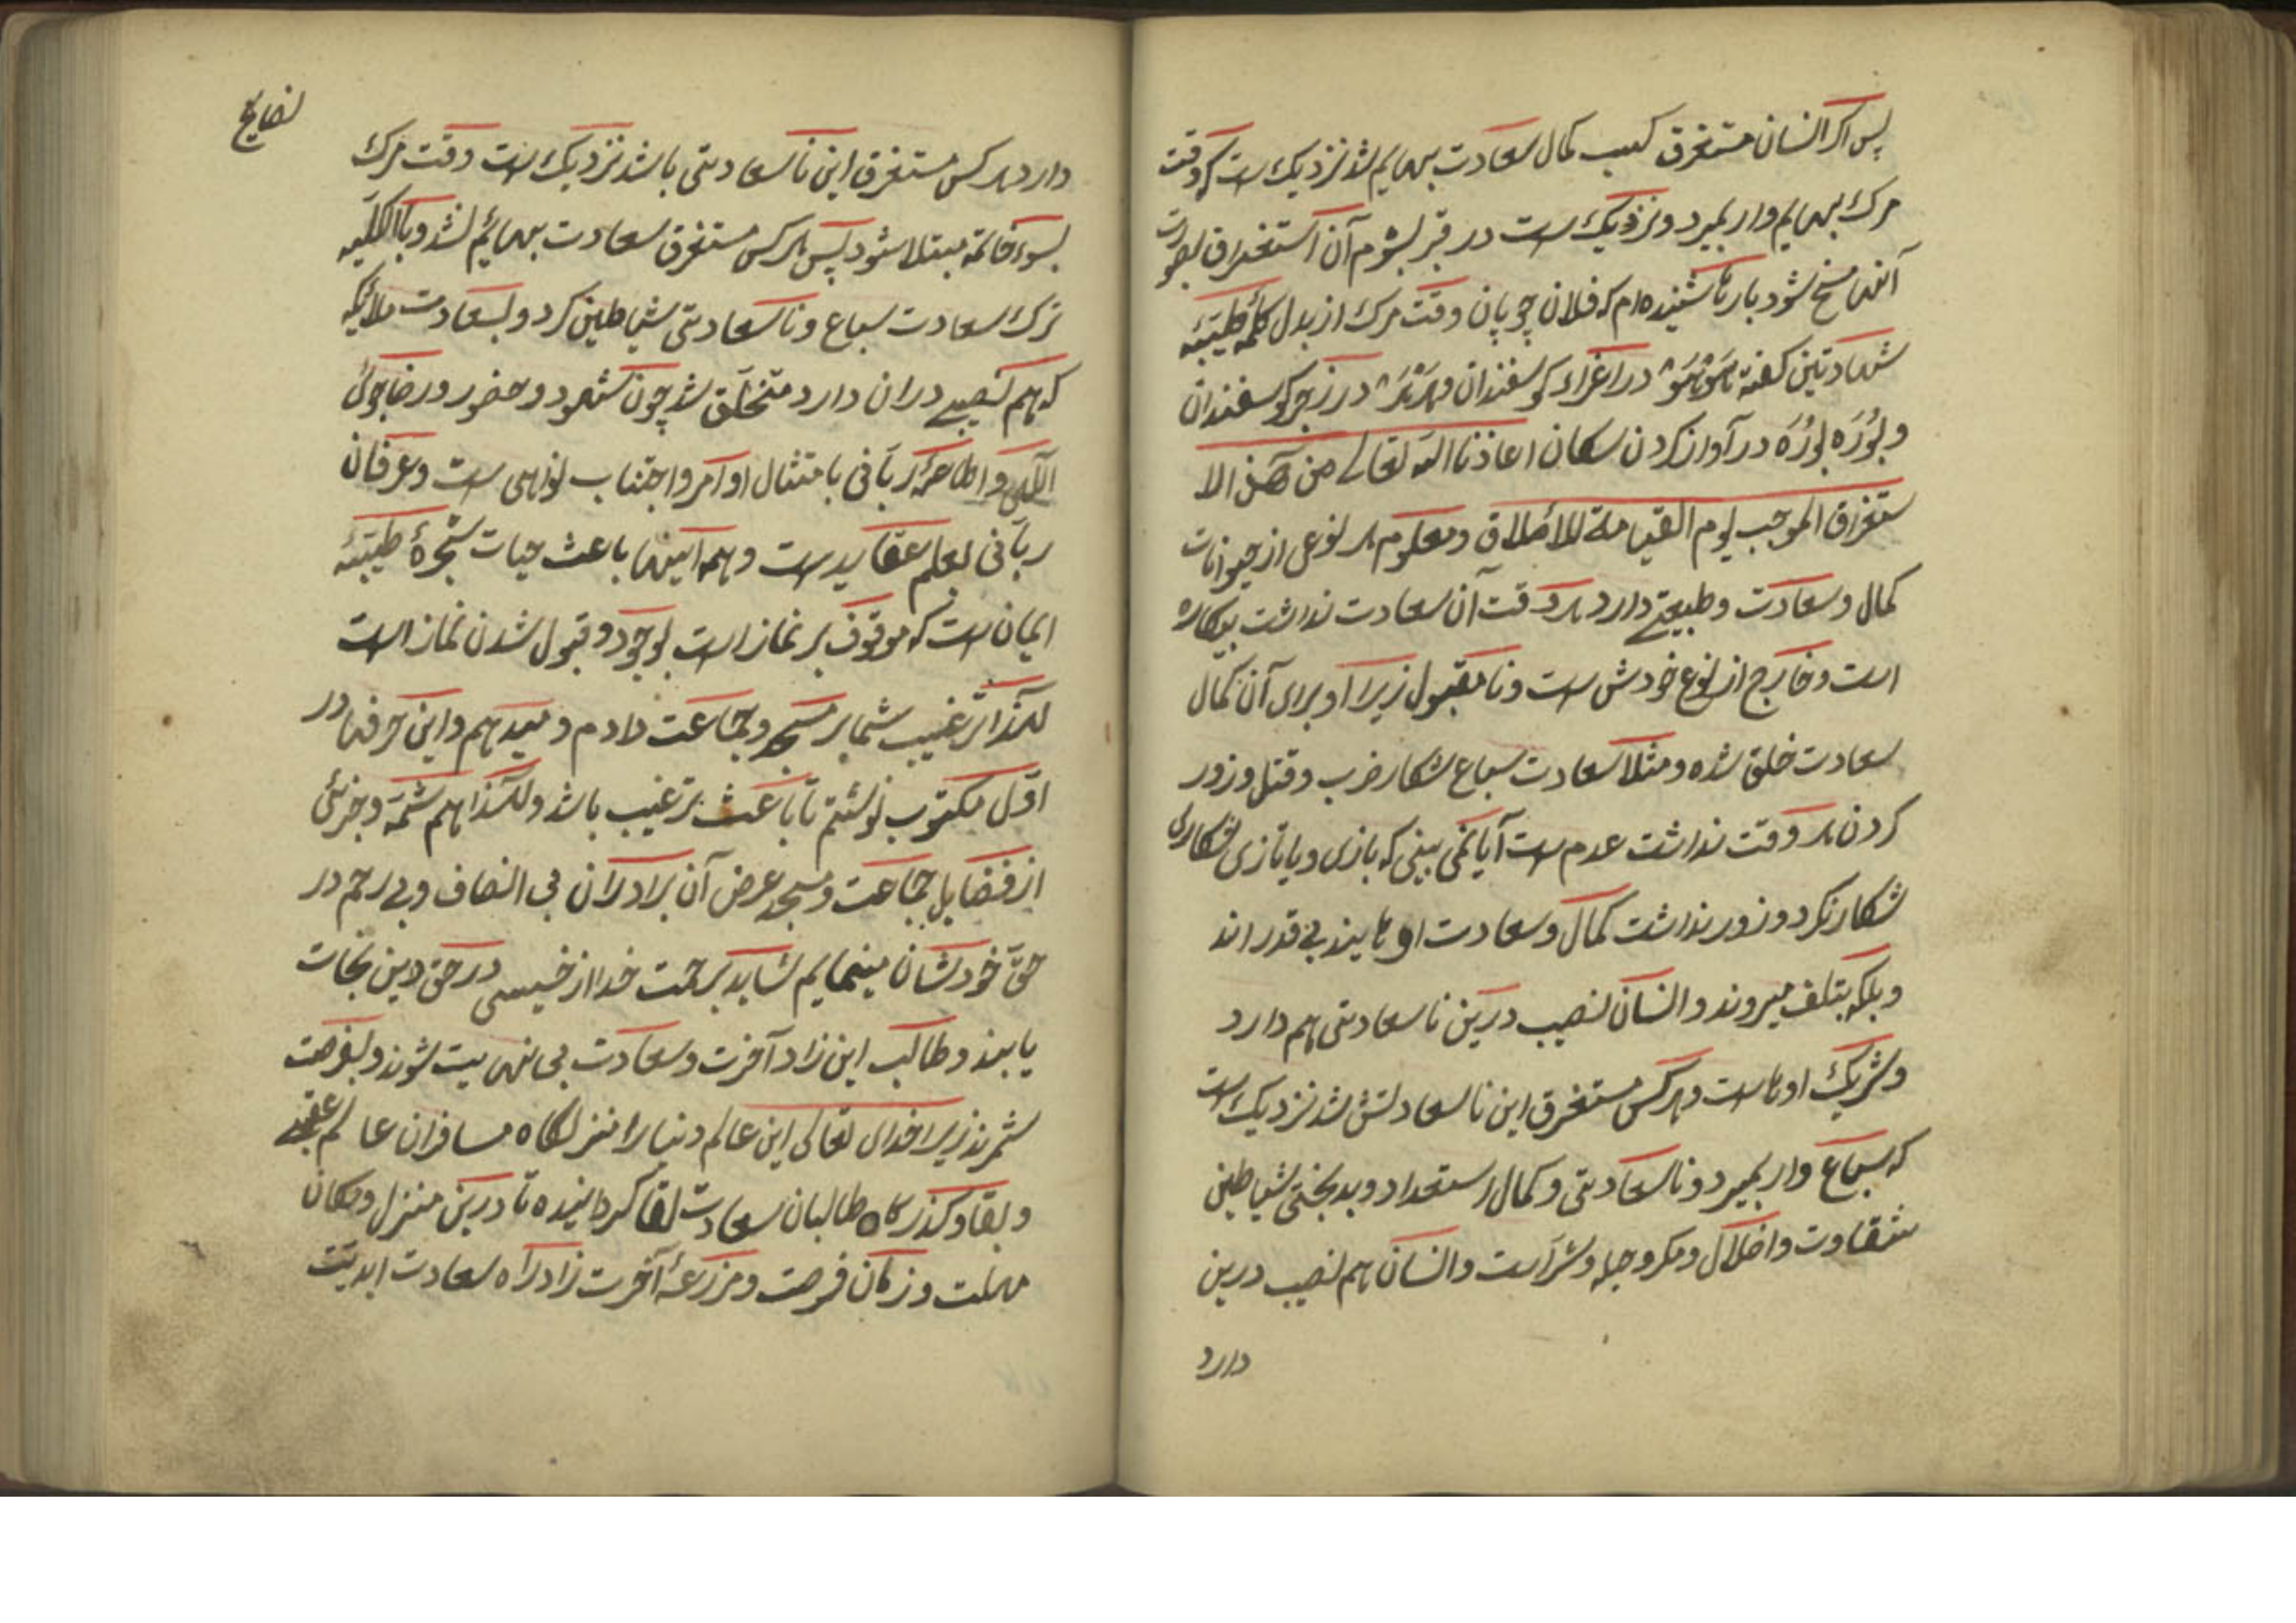 پس اکر انسان مستغرق کسب کمال سعادت بهایم شد نزدیک است که وقت
مرک بهایم وار بمیرد و نزدیک است در قبر بشوم آن استغراق بصورت
آنها مسخ شود بارها شنیده ام که فلان چوپان وقت مرک از بدل کلمهٔ طیّبهٔ
شهادتین کفته در اغراء کوسفندان در زجر کوسفندان
و در آواز کردن سکان اعاذنا الله تعالی من هذ الا
ستغراق الموجب لیوم القیامة للأملاق ومعلوم هر نوعی از حیوانات
کمال وسعادت وطبیعتے دارد هر وقت آن سعادت نداشت بیکاره
است وخارج از نوع خودش است ونا مقبول زیرا او برای آن کمال
سعادت خلق شده ومثلا سعادت سباع شکار ضرب وقتل وزور
کردن هر وقت نداشت عدم است آیا نمی بینی که بازی ویا تازی شکاری
شکار نکرد وزور نداشت کمال وسعادت اوهایند بی قدر اند
وبلکه بتلف میروند وانسان نصیب درین ناسعادتی هم دارد
وشریک اوهاست وهرکس مستغرق این ناسعادتش شد نزدیک است
که سباع وار بمیرد وناسعادتی وکمال استعداد وبدبختی شیاطین
شقاوت واخلال ومکر وحیله وشرّ است وانسان هم نصیب درین
دارد
نصایح
دارد هر کس مستغرق این ناسعادتی باشد نزدیک است وقت مرک
بسوء خاتمه مبتلا شود پس هر کس مستغرق سعادت بهائم نشد وبا الکلّیه
ترک سعادت سباع وناسعادتی شیاطین کرد وبسعادت ملائیکه
که هم نصیبے دران دارد متخلّق شد چون شهود وحضور ورضاجوئ
الٓهی واطاعهٔ ربّانی بامتثال اوامر واجتناب نواهی است وعرفان
ربّانی بعلم عقاید است وهمه اینها باعث حیات شجرهٔ طیّبهٔ
ایمان است که موقوف بر نماز است بوجود وقبول شدن نماز است
لهذا ترغیب شما بر مسجد وجماعت دادم ومیدهم واین حرفها در
اوّل مکتوب نوشتم تا باعث ترغیب باشد ولهذا هم شمّه وجزئی
از فضایل جماعت ومسجد عرض آن برادران بی انصاف وبی رحم در
حقّ خودشان مینمایم شاید برحمت خدا از خسیسی در حق دین نجات
یابند وطالب این زاد آخرت وسعادت بی نهایت شوند وبفرصت
شمرند زیرا خدای تعالی این عالم دنیا را منزلکاه مسافران عالم عقبے
وبقا وکذرکاه طالبان سعادت لقا کردانیده تا درین منزل ومکان
مهلت وزمان فرصت ومزرعهٔ آخرت زاد راه سعادت ابدیّت